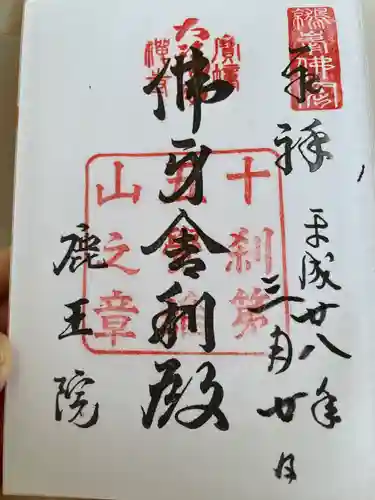 奉拝
平成廿八年
三月廿日
佛牙舎利殿
鹿王院
寶幢
禅寺
十刹第
山之章